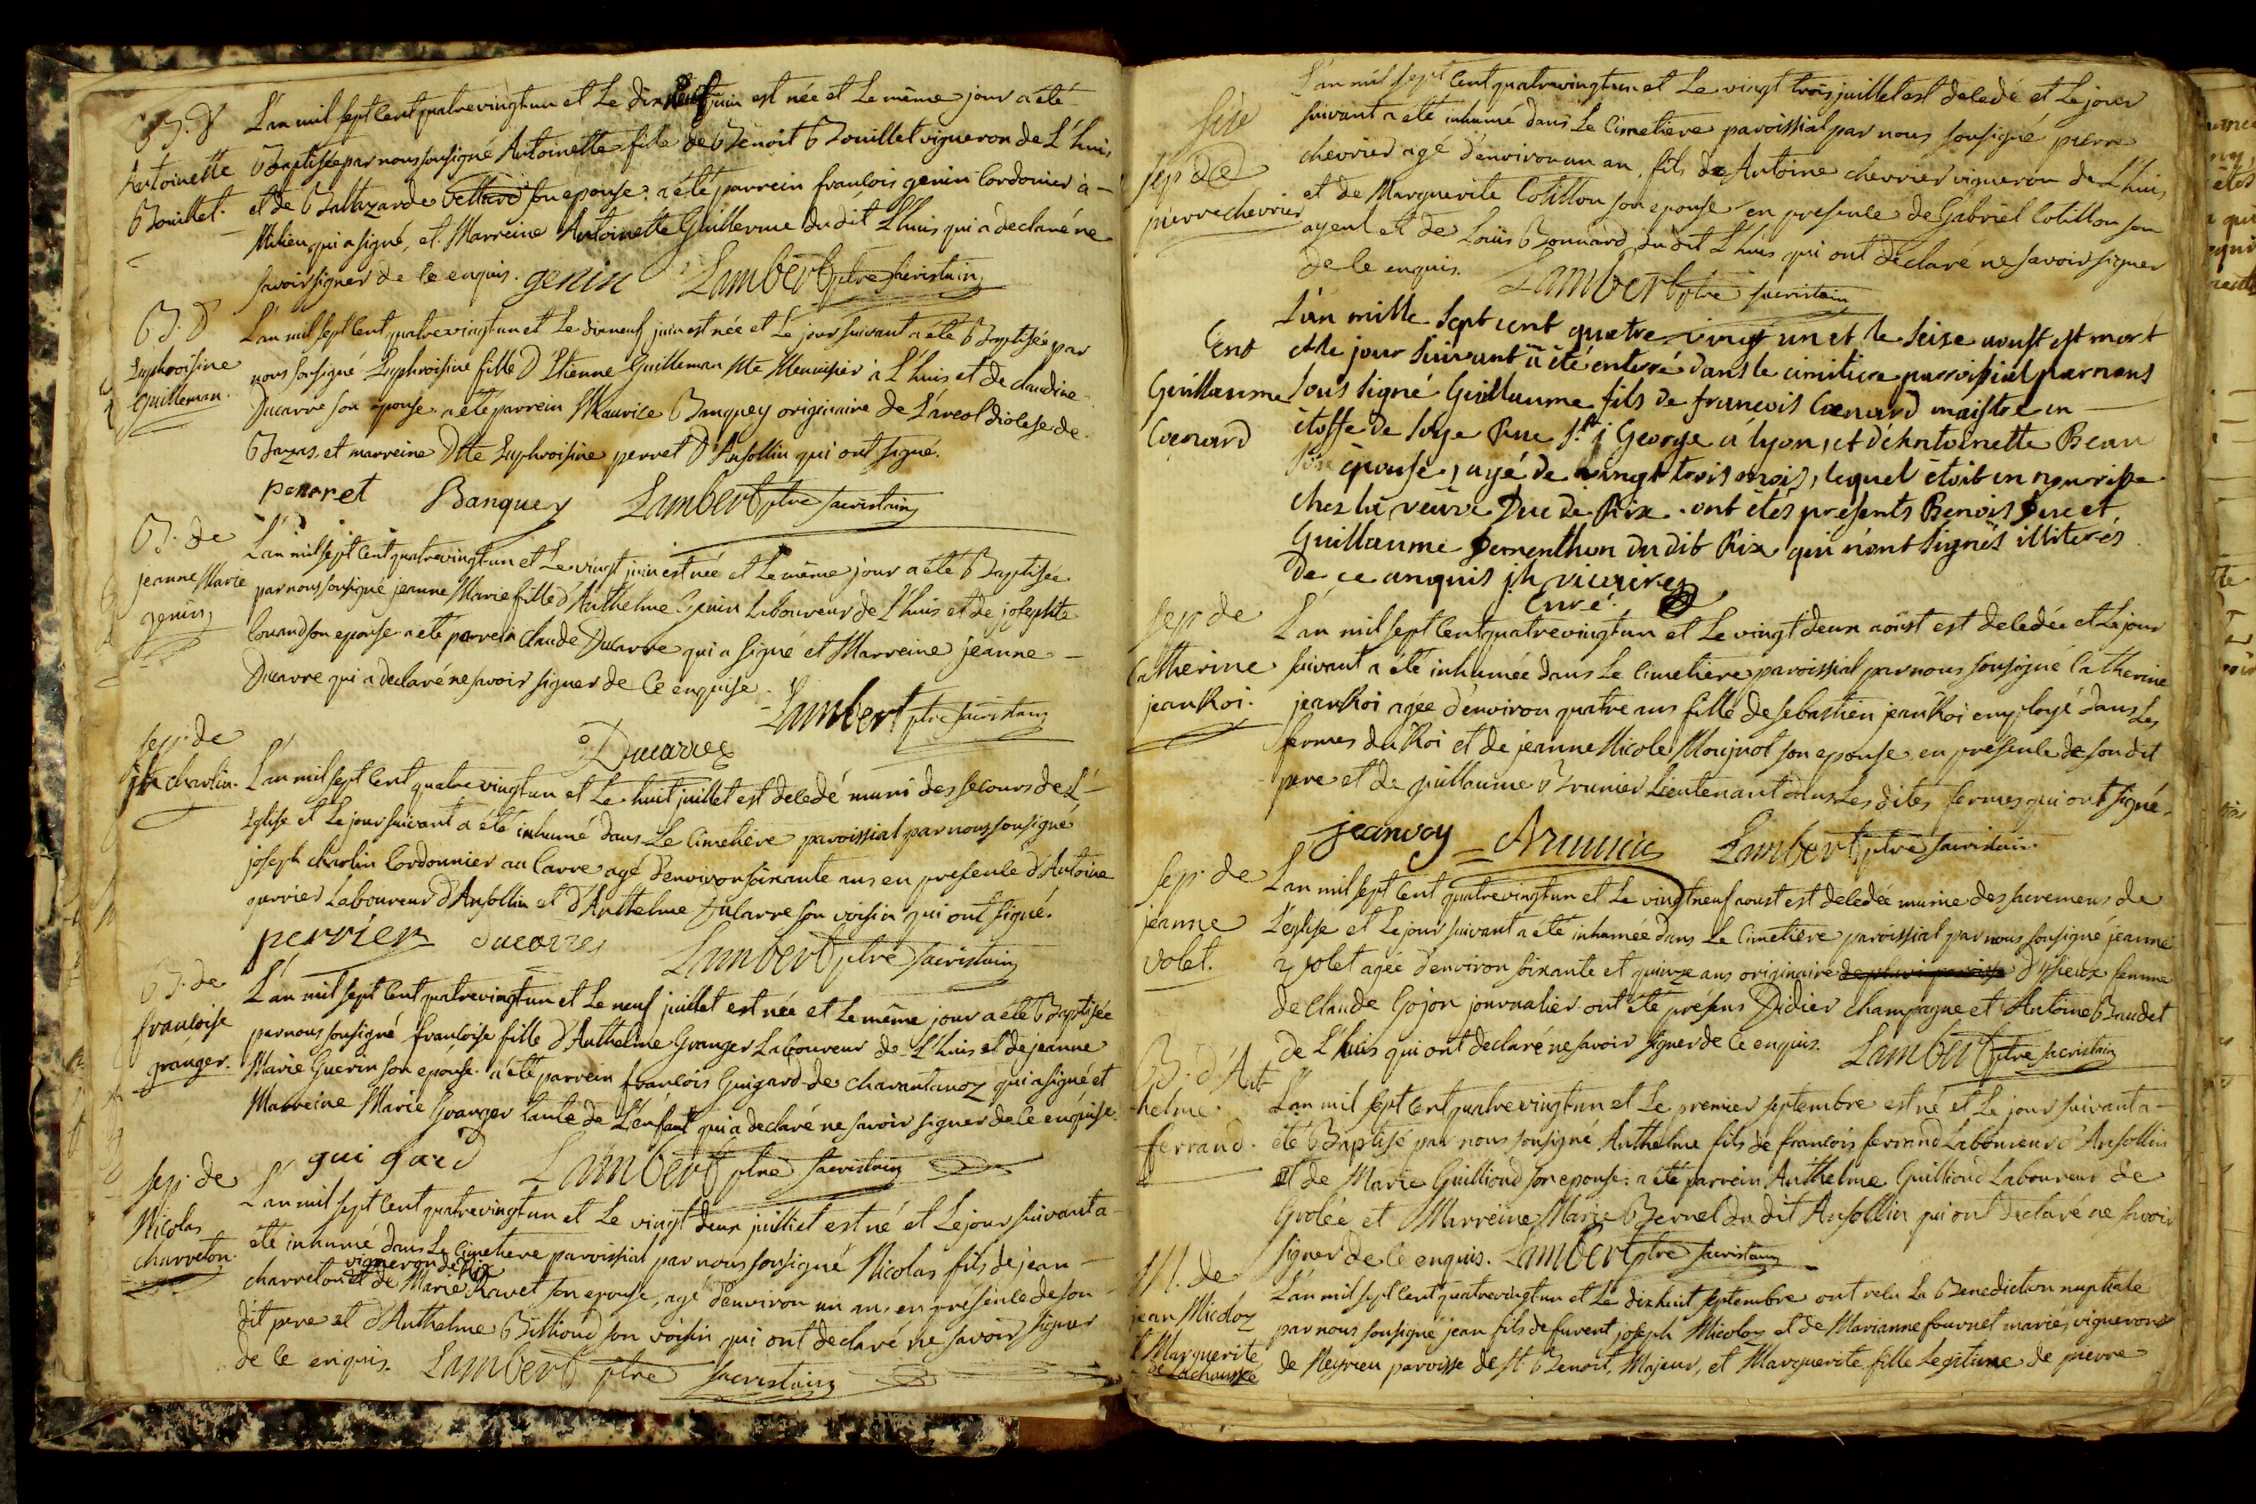 B. d'
Antoinette
Bouillet.
L'an mil sept cent quatrevingt un et le dix neuf juin est née et le même jour a été
Baptisée par nous sousigné Antoinette fille de Benoit Bouillet vigneron de L'huis
et de Baltazarde son epouse: a été parrein francois genin Cordonier à
Milieu qui a signé, et Marreine Antoinette Guillerme du dit L'huis qui a declaré ne
savoir signer de ce enquis. genin Lambert ptre sacristain
B. d'
Euphroisine
Guilleman.
L'an mil sept cent quatrevingt un et le dix neuf juin est née et le jour suivant a été Baptisée par
nous sousigné Euphroisine fille d'Etienne Guilleman Me Menuisier à L'huis et de claudine
Ducarre son epouse a été parrein Maurice Banquey originaire de diocese de
Bazas. et marreine Dlle Euphroisine perret d'Ansollin qui ont signé.
perret Banquey Lambert ptre sacristain
B. de
jeanne Marie
genin
L'an mil sept cent quatrevingt un et le vingt juin est née et le même jour a été Baptisée
par nous sousigné jeanne Marie fille d'Anthelme Genin Laboureur de L'huis et de josephte
son epouse a été parrein claude Ducarre qui a signé et Marreine jeanne
Ducarre qui a declaré ne savoir signer de ce enquise.
Ducarre Lambert ptre sacristain
sep. de
jh charlin.
L'an mil sept cent quatrevingt un et le huit juillet est decedé muni des secours de L'
Eglise et le jour suivant a été inhumé dans le cimetiere paroissial par nous sousigné
joseph charlin Cordonnier au Carre agé d'environ soixante ans en presence d'Antoine
perrier Laboureur d'Ansollin et d'Anthelme Ducarre son voisin qui ont signé.
perrier ducarre Lambert ptre sacristain
B. de
francoise
granger.
L'an mil sept cent quatrevingt un et le neuf juillet est née et le même jour a été Baptisée
par nous sousigné francoise fille d'Anthelme Granger Laboureur de L'huis et de jeanne
Marie Guerin son epouse. a été parrein francois Guigard de charantanoz qui a signé et
Marreine Marie Granger tante de L'enfant qui a declaré ne savoir signer de ce enquise.
gui gard Lambert ptre sacristain
sep. de
Nicolas
charreton.
L'an mil sept cent quatrevingt un et le vingt deux juilliet est né et le jour suivant a
été inhumé dans le cimetiere paroissial par nous sousigné Nicolas fils de jean
vigneron de Rix
charreton et de Marie Ravet son epouse, agé d'environ un an, en présence de son
dit pere et d'Anthelme Billioud son voisin qui ont declaré ne savoir signer
de ce enquis. Lambert ptre sacristain
sep de
pierre chevrier
L'an mil sept cent quatrevingt un et le vingt trois juillet est decedé et le jour
suivant a été inhumé dans le cimetiere paroissial par nous sousigné pierre
chevrier agé d'environ un an, fils de Antoine chevrier vigneron de L'huis
et de Marguerite Cotillon son epouse en presence de Gabriel Cotillon son
ayeul et de Louis Bonnard du dit L'huis qui ont déclaré ne savoir signer
de ce enquis. Lambert ptre sacristain
Ent
Guillaume
Coenard
L'an mille sept cent quatre vingt un et le seize aoust est mort
et le jour suivant a été enterré dans le cimitiere parroissial par nous
sous signé Guillaume fils de francois Coenard maistre en
étoffe de soye Rue St George à lyon, et d'Antoinette Beau
son épouse, agé de vingt trois mois, lequel étoit en nourisse
chez la veuve Duc de Rix. ont étés présents Benois Duc et
Guillaume Pernenthon du dit Rix qui n'ont signés illiterés
de ce anquis jh vicaire
Curé.
sep. de
Catherine
jeanRoi.
L'an mil sept cent quatrevingt un et le vingt deux aoust est decedée et le jour
suivant a été inhumée dans le cimetiere paroissial par nous sousigné Catherine
jeanRoi agée d'environ quatre ans fille de sebastien jeanRoi employé dans les
fermes du Roi et de jeanne Nicole Moujnot son epouse en presence de son dit
pere et de guillaume Brunier Lieutenant dans les dites fermes qui ont signé.
jeanroy Brunier Lambert ptre sacristain.
sep. de
jeanne
volet.
L'an mil sept cent quatrevingt un et le vingt neuf aoust est decedée munie des sacremens de
L'église et le jour suivant a été inhumée dans le cimetiere paroissial par nous sousigné jeanne
volet agée d'environ soixante et quinze ans originaire d'issieux femme
de claude Gojon journalier ont été présens Didier champagne et Antoine Baudet
de L'huis qui ont declaré ne savoir signer de ce enquis. Lambert ptre sacristain
B. d'Ant
helme
ferrand.
L'an mil sept cent quatrevingt un et le premier septembre est né et le jour suivant a
été Baptisé par nous sousigné Anthelme fils de francois ferrand Laboureur d'Ansollin
et de Marie Guilliond son epouse: a été parrein Anthelme Guilliond Laboureur de
Grolée et Marreine Marie Bernel du dit Ansollin qui ont declaré ne savoir
signer de ce enquis. Lambert ptre sacristain
M. de
jean Micoloz
& Marguerite
de Lachaussée
L'an mil sept cent quatrevingt un et le dix huit septembre ont recu la Benediction nuptiale
par nous sousigné jean fils de furent joseph Micoloz et de Marianne fournet mariés, vignerons
de fleyrieu paroisse de St Benoit, Majeur, et Marguerite fille legitime de pierre